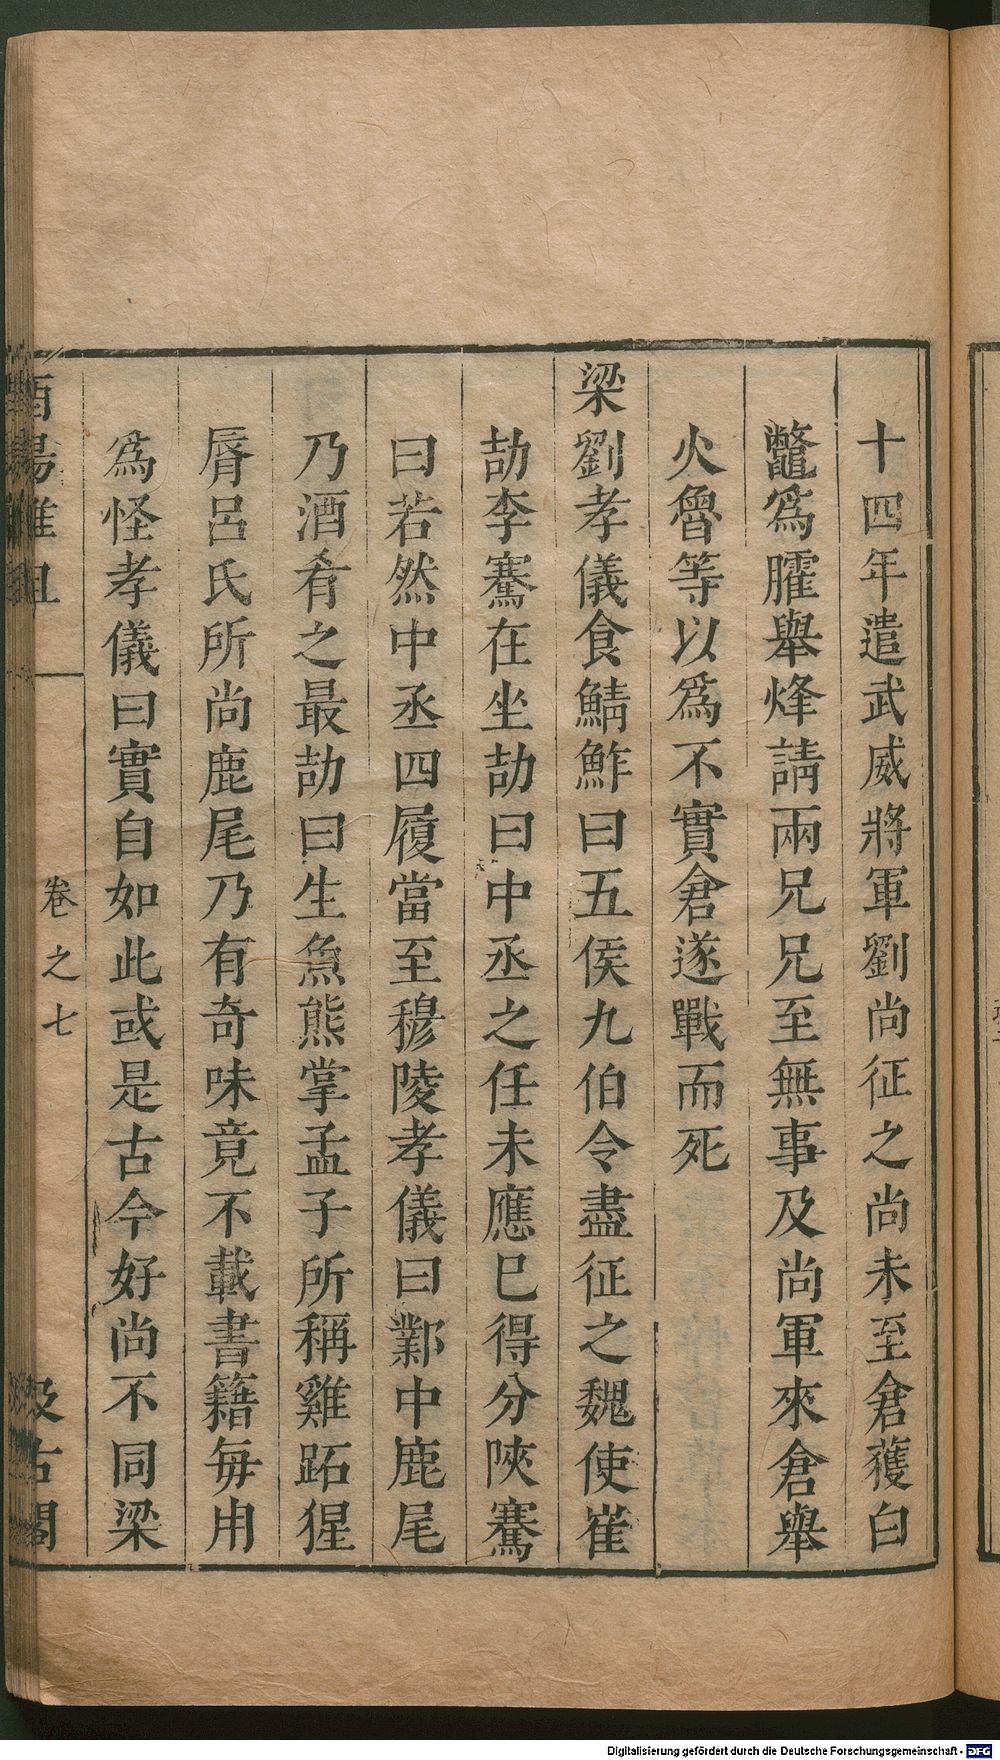 十四年遣武威將軍劉尚征之尚未至倉獲白
鼈爲臛舉烽請兩兄兄至無事及尚軍來倉舉
火魯等以爲不實倉遂戰而死
梁劉孝儀食鯖鮓曰五侯九伯令盡征之魏使崔
劼李騫在坐劼曰中丞之任未應已得分陝騫
曰若然中丞四履當至穆陵孝儀曰鄴中鹿尾
乃酒肴之最劼曰生魚熊掌孟子所稱雞跖猩
脣呂氏所尚鹿尾乃有奇味竟不載書籍每用
爲怪孝儀曰實自如此或是古今好尚不同梁
酉陽雜俎
卷之七
汲古閣
Digitalisierung gefördert durch die Deutsche Forschungsgemeinschaft - DFG